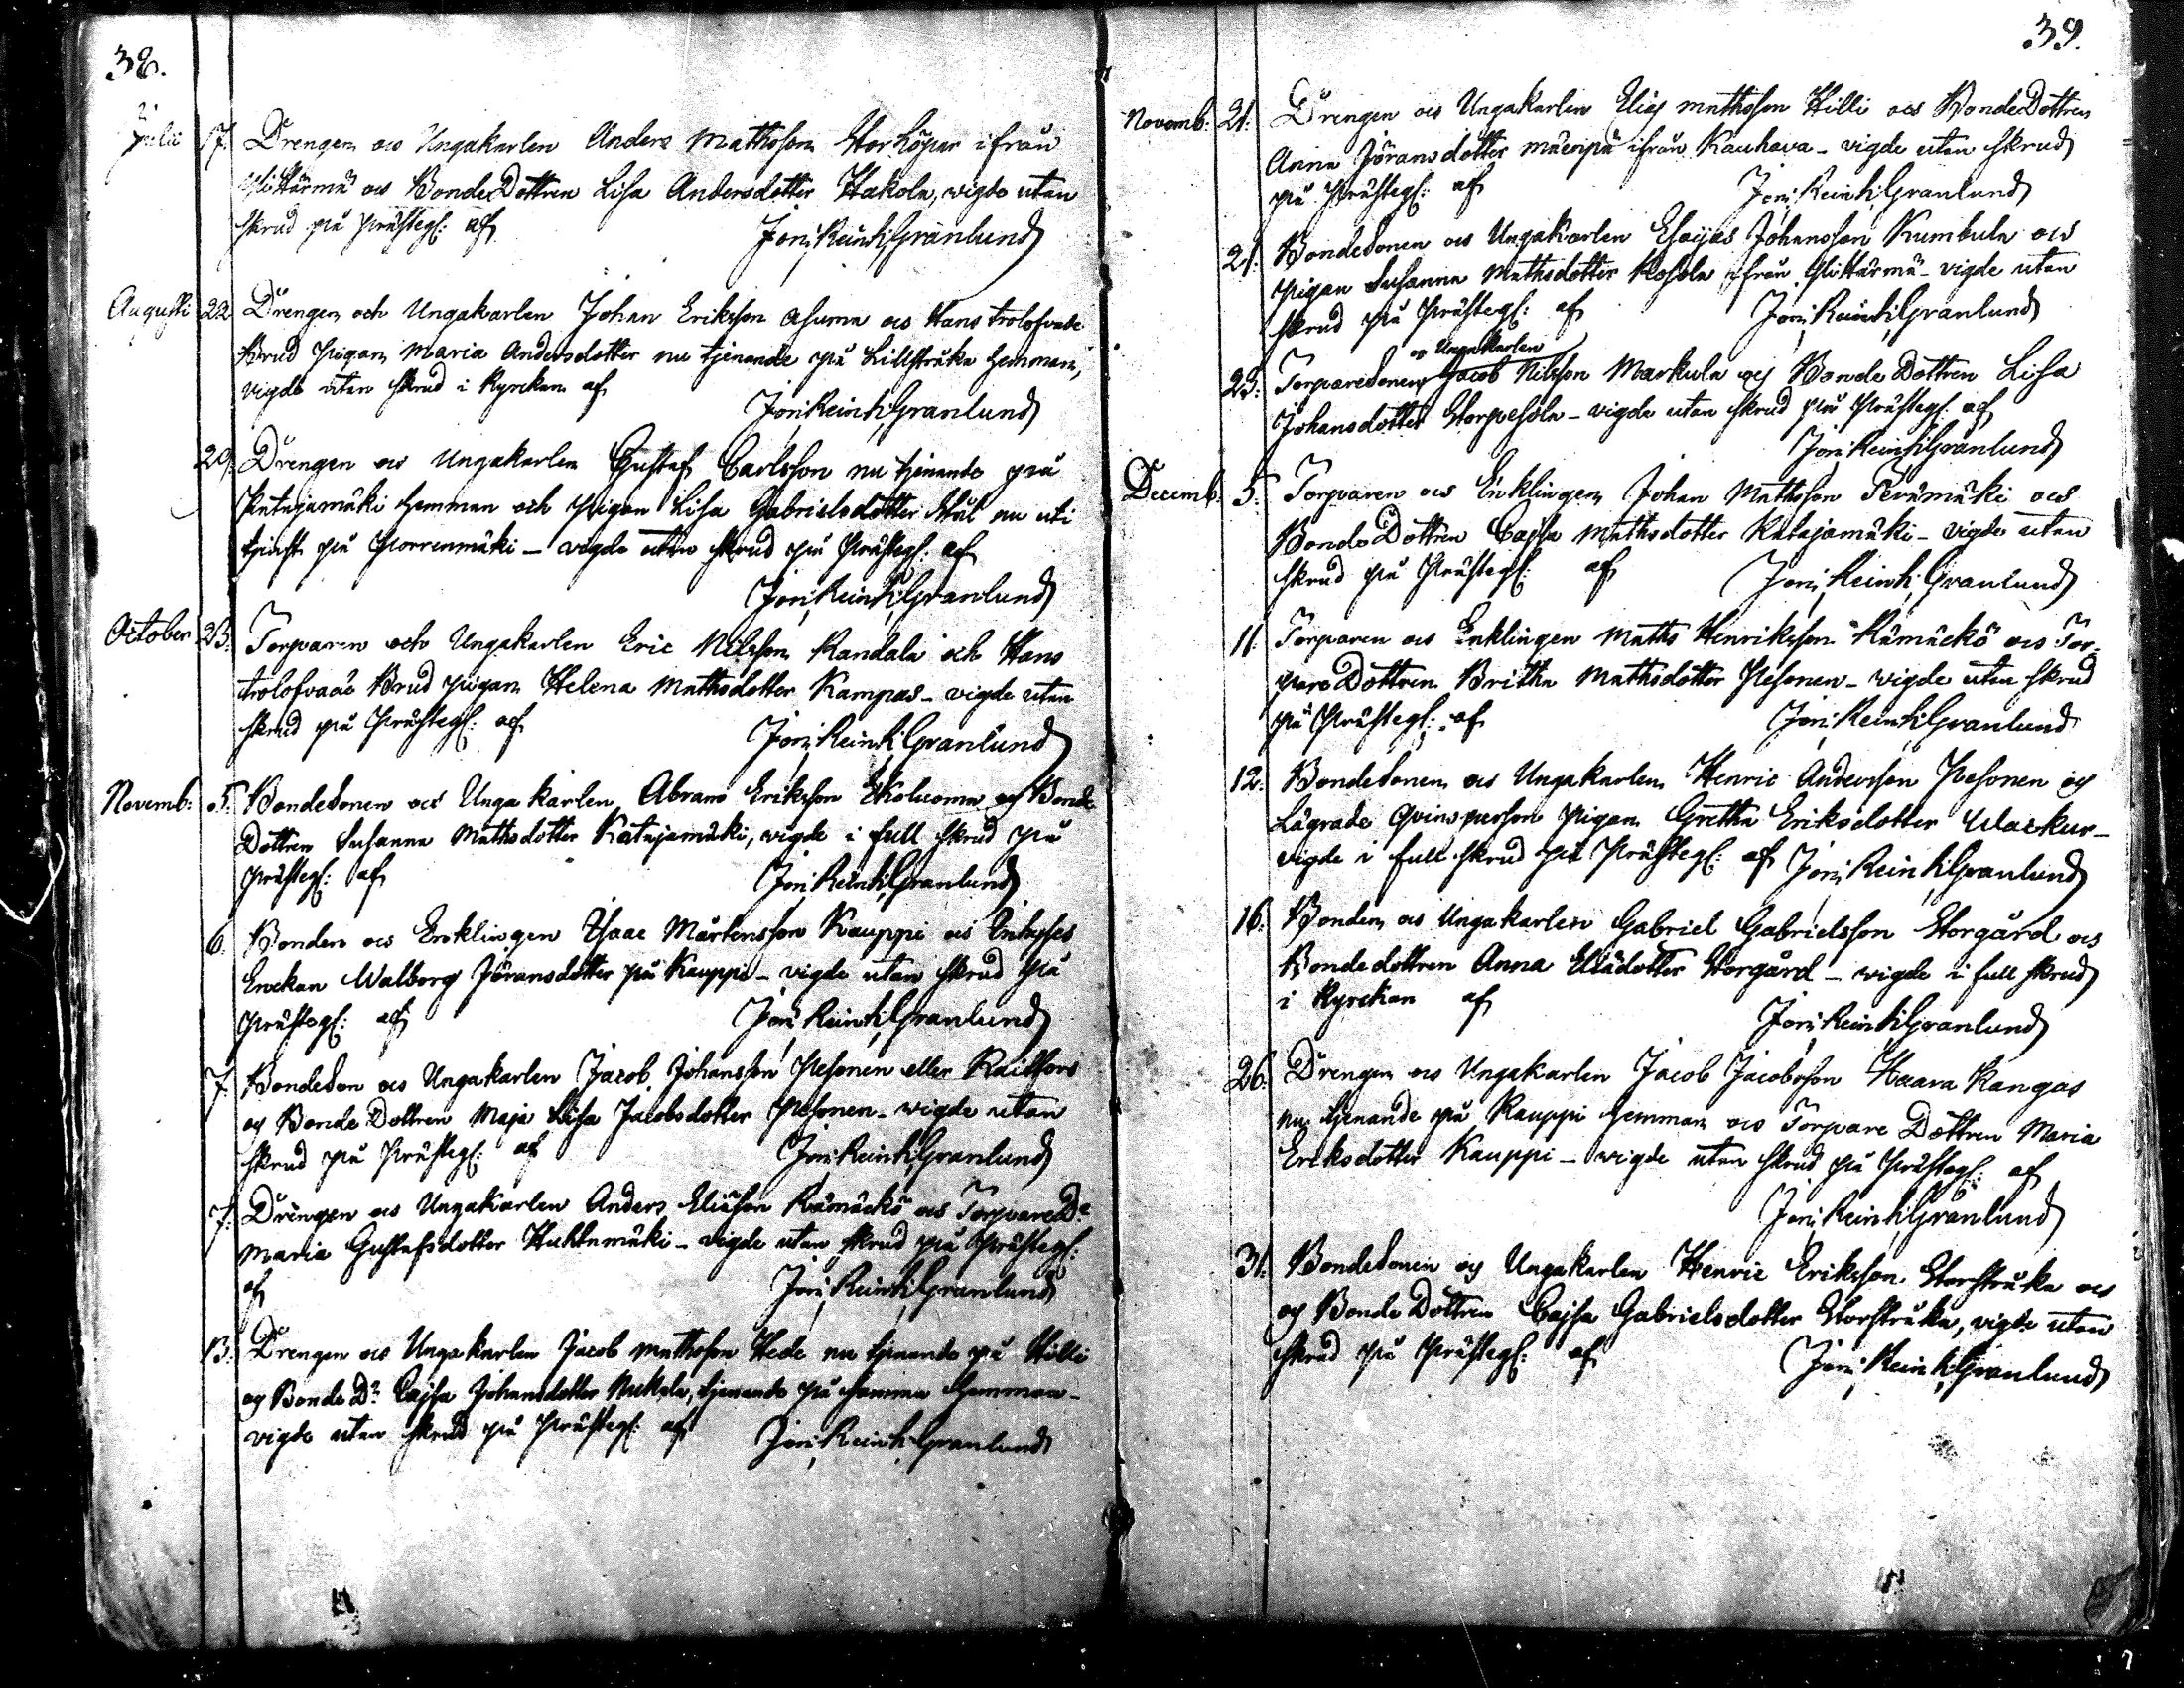 38.
Julii 17. Drengen och Ungakarlen Anders Mathsson Storköpar ifrån
Ylihärmä och BondeDottren Lisa Andersdotter Hakola, vigde utan
skrud på Prästeg: af Jon: Reinh: Granlund
Augusti 22 Drengen och Ungakarlen Johan Eriksson Asuma och Hans trolofvade
Brud Pigan Maria Andersdotter nu tjenande på Lillstråka Hemman,
vigde utan skrud i Kyrckan af
Jon: Reinh: Granlund
29. Drengen och Ungakarlen Gustaf Carlsson nu tjenande på
Katajamäki Hemman och Pigan Lisa Gabrielsdotter Stål nu uti
tjenst på Porrenmäki – vigde utan skrud på Prästeg: af
Jon: Reinh: Granlund
October 23. Torparen och Ungakarlen Eric Nilsson Kandala och Hans
trolofvade Brud Pigan Helena Mathsdotter Kampas – vigde utan
skrud på Prästeg: af
Jon: Reinh: Granlund
Novemb: 5. BondeSonen och Ungakarlen Abram Eriksson Ekoluoma och Bonde
Dottren Susanna Mathsdotter Katajamäki, vigde i full skrud på
Prästeg: af Jon: Reinh: Granlund
6. Bonden och Encklingen Isaac Mårtensson Kauppi och Inhyses
Enckan Walborg Jöransdotter på Kauppi – vigde utan skrud på
Prästeg: af Jon: Reinh: Granlund
7. BondeSon och Ungakarlen Jacob Johansson Pesonen eller Raidfors
och Bonde Dottren Maja Lisa Jacobsdotter Pesonen – vigde utan
skrud på Prästeg: af Jon: Reinh: Granlund
7. Drengen och Ungakarlen Anders Eliæson Rämäckö och TorpareDr
Maria Gustafsdotter Huhtamäki – vigde utan skrud på Prästeg:
af Jon: Reinh: Granlund
13. Drengen och Ungakarlen Jacob Mathsson Hede nu tjenande på Hilli
och Bonde Dr Cajsa Johansdotter Nukala, tjenande på samma Hemman –
vigde utan skrud på Prästeg: af Jon: Reinh: Granlund
39.
Novemb: 21. Drengen och Ungakarlen Elias Mathsson Hilli och BondeDottren
Anna Jöransdotter Mäenpä ifrån Kauhava – vigde utan skrud
på Prästeg: af Jon: Reinh: Granlund
21. BondeSonen och Ungakarlen Esaijas Johansson Kumbula och
Pigan Susanna Mathsdotter Kosola ifrån Ylihärmä – vigde utan
skrud på Prästeg: af Jon: Reinh: Granlund
och Ungakarlen
23. TorpareSonen Jacob Nilsson Markula och Bonde Dottren Lisa
Johansdotter Storpesola – vigde utan skrud på Prästeg: af
Jon: Reinh: Granlund
Decemb: 5. Torparen och Enklingen Johan Mathsson Perämäki och
Bonde Dottren Cajsa Mathsdotter Katajamäki – vigde utan
skrud på Prästeg: af Jon: Reinh: Granlund
11. Torparen och Enklingen Maths Henriksson Rämäckö och Tor-
pare Dottren Britha Mathsdotter Pesonen – vigde utan skrud
på Prästeg: af Jon: Reinh: Granlund
12. BondeSonen och Ungakarlen Henric Andersson Pesonen och
Lägrade Qvinsperson Pigan Gretha Eriksdotter Wackur –
vigde i full skrud på Prästeg: af Jon: Reinh: Granlund
16. Bonden och Ungakarlen Gabriel Gabrielsson Storgård och
Bondedottren Anna Eliædotter Storgård – vigde i full skrud
i Kyrckan af
Jon: Reinh: Granlund
26. Drengen och Ungakarlen Jacob Jacobsson Haara Kangas
nu tjenande på Kauppi Hemman och Torpare Dottren Maria
Eriksdotter Kauppi – vigde utan skrud på Prästeg: af
Jon: Reinh: Granlund
31. BondeSonen och Ungakarlen Henric Eriksson Storstråka och
och Bonde Dottren Cajsa Gabrielsdotter Storstråka, vigde utan
skrud på Prästeg: af
Jon: Reinh: Granlund